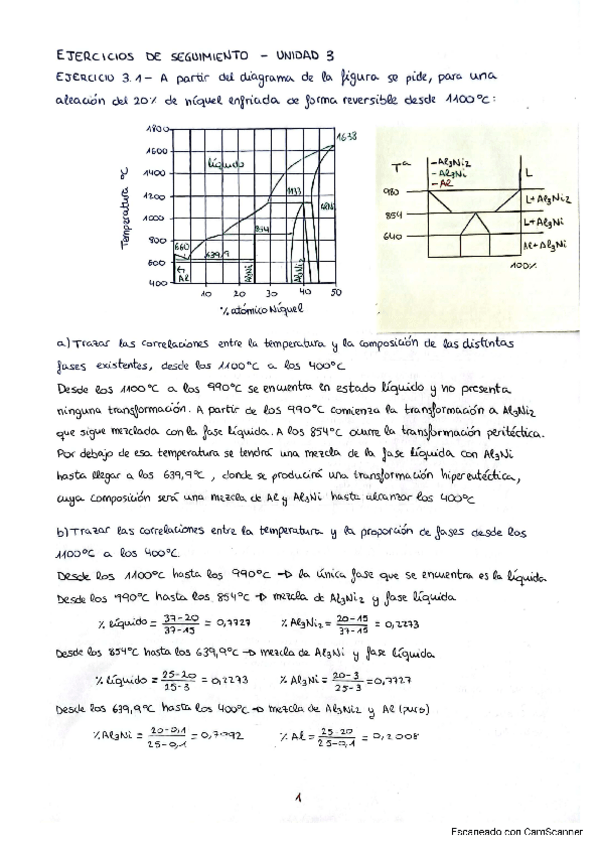 EJERCICIOS DE SEGUIMIENTO - UNIDAD 3
EJERCICIO 3.1- A partir del diagrama de la figura se pide, para una
aleación del 20% de níquel enfriada de forma reversible desde 1100ºC:
1800
1600
1400
1200
1000
800
600
400
Temperatura ºC
líquido
1638
1133
854
660
639,9
← Al
Al3Ni
Al3Ni2
AlNi
10 20 30 40 50
% atómico Níquel
Tª
-Al3Ni2
-Al3Ni
-Al
L
980
L+Al3Ni2
854
L+Al3Ni
640
Al+Al3Ni
100%
a) Trazar las correlaciones entre la temperatura y la composición de las distintas
fases existentes, desde los 1100ºC a los 400ºC
Desde los 1100ºC a los 990ºC se encuentra en estado líquido y no presenta
ninguna transformación. A partir de los 990ºC comienza la transformación a Al3Ni2
que sigue mezclada con la fase líquida. A los 854ºC ocurre la transformación peritéctica.
Por debajo de esa temperatura se tendrá una mezcla de la fase líquida con Al3Ni
hasta llegar a los 639,9ºC, donde se producirá una transformación hipereutéctica,
cuya composición será una mezcla de Al y Al3Ni hasta alcanzar los 400ºC
b) Trazar las correlaciones entre la temperatura y la proporción de fases desde los
1100ºC a los 400ºC.
Desde los 1100ºC hasta los 990ºC → la única fase que se encuentra es la líquida
Desde los 990ºC hasta los 854ºC → mezcla de Al3Ni2 y fase líquida
% líquido = 37-20 / 37-15 = 0,7727 % Al3Ni2 = 20-15 / 37-15 = 0,2273
Desde los 854ºC hasta los 639,9ºC → mezcla de Al3Ni y fase líquida
% líquido = 25-20 / 15-3 = 0,2273 % Al3Ni = 20-3 / 25-3 = 0,7727
Desde los 639,9ºC hasta los 400ºC → mezcla de Al3Ni2 y Al (puro)
% Al3Ni = 20-0,1 / 25-0,1 = 0,7992 % Al = 25-20 / 25-0,1 = 0,2008
1
Escaneado con CamScanner